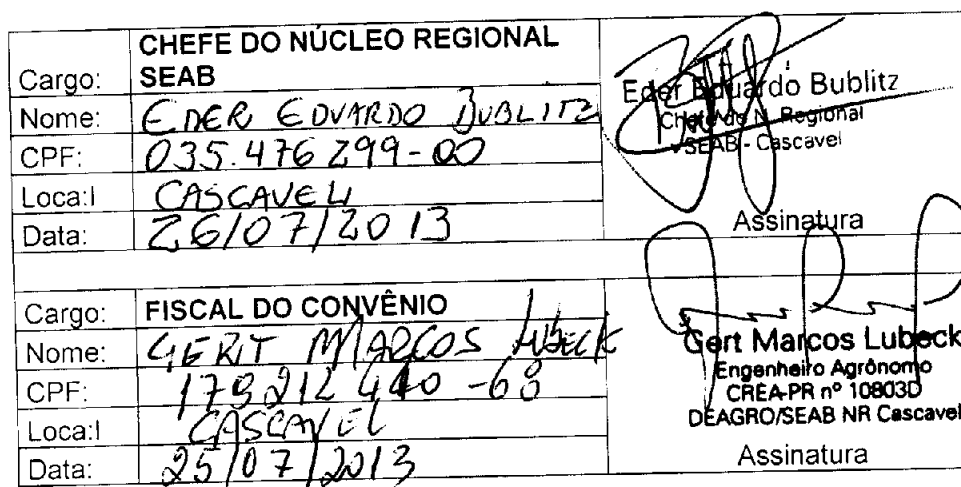 CHEFE DO NÚCLEO REGIONAL
Cargo: SEAB
Nome: EDER EDUARDO BUBLITZ
CPF: 035.476 299-00
Loca:l CASCAVEL
Data: 26/07/2013
Eder Eduardo Bublitz
Chefe do N. Regional
SEAB - Cascavel
Assinatura
Cargo: FISCAL DO CONVÊNIO
Nome: GERT MARCOS LUBECK
CPF: 179212 440-68
Loca:l CASCAVEL
Data: 25/07/2013
Gert Marcos Lubeck
Engenheiro Agrônomo
CREA-PR nº 10803D
DEAGRO/SEAB NR Cascavel
Assinatura